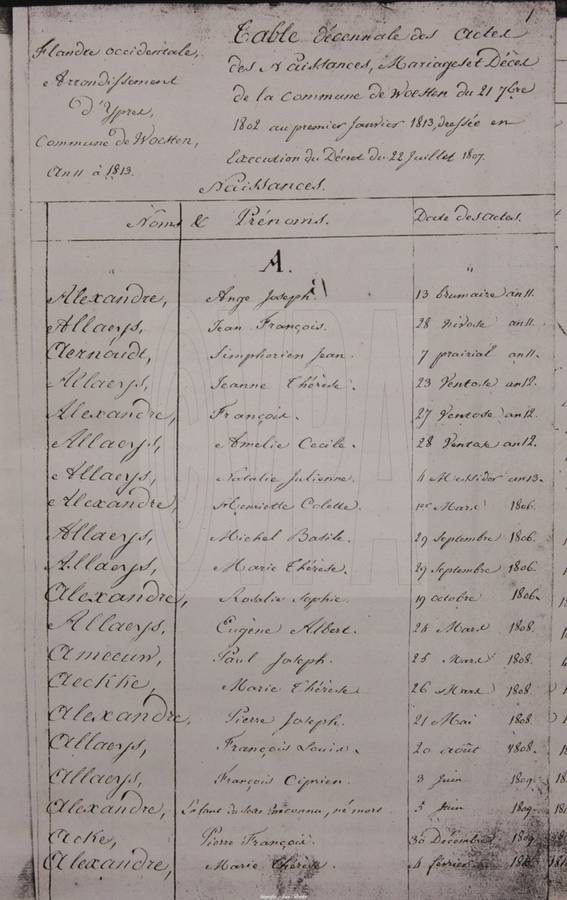 1
Flandre occidentale,
Arrondissement
D'Ypres,
Commune de Woesten,
an 11 à 1813.
Table décennale des actes
des Naissances, Mariages et Décès
de la Commune de Woesten du 21 7bre
1802 au premier Janvier 1813, dressée en
Execution du Décret du 22 Juillet 1807.
Naissances.
Noms & Prénoms. Date des actes.
A.
Alexandre, Ange Joseph. 13 brumaire an 11.
Allaeys, Jean François. 28 Nivose an 11.
Aernoudt, Simphorien Jean. 7 prairial an 11.
Allaeys, Jeanne Thérèse. 23 Ventose an 12.
Alexandre, François. 27 Ventose an 12.
Allaeys, Amelie Cecile. 28 Ventose an 12.
Allaeys, Natalie Julienne. 4 Messidor an 13.
Alexandre, Henriette Colette. 1er Mars 1806.
Allaeys, Michel Basile. 29 Septembre 1806.
Allaeys, Marie Thérèse. 29 Septembre 1806.
Alexandre, Rosalie Sophie. 19 octobre 1806.
Allaeys, Eugène Albert. 24 Mars 1808.
Ameeuw, Paul Joseph. 25 Mars 1808.
Aeckke, Marie Thérèse 26 Mars 1808
Alexandre, Pierre Joseph. 21 Mai 1808
Allaeys, François Louis. 20 août 1808.
Allaeys, François Ciprien. 3 Juin 1809.
Alexandre, L'efant du sexe inconnu, né mort. 5 Juin 1809.
Acke, Pierre François. 30 Décembre 1809
Alexandre, Marie Thérèse. 4 février